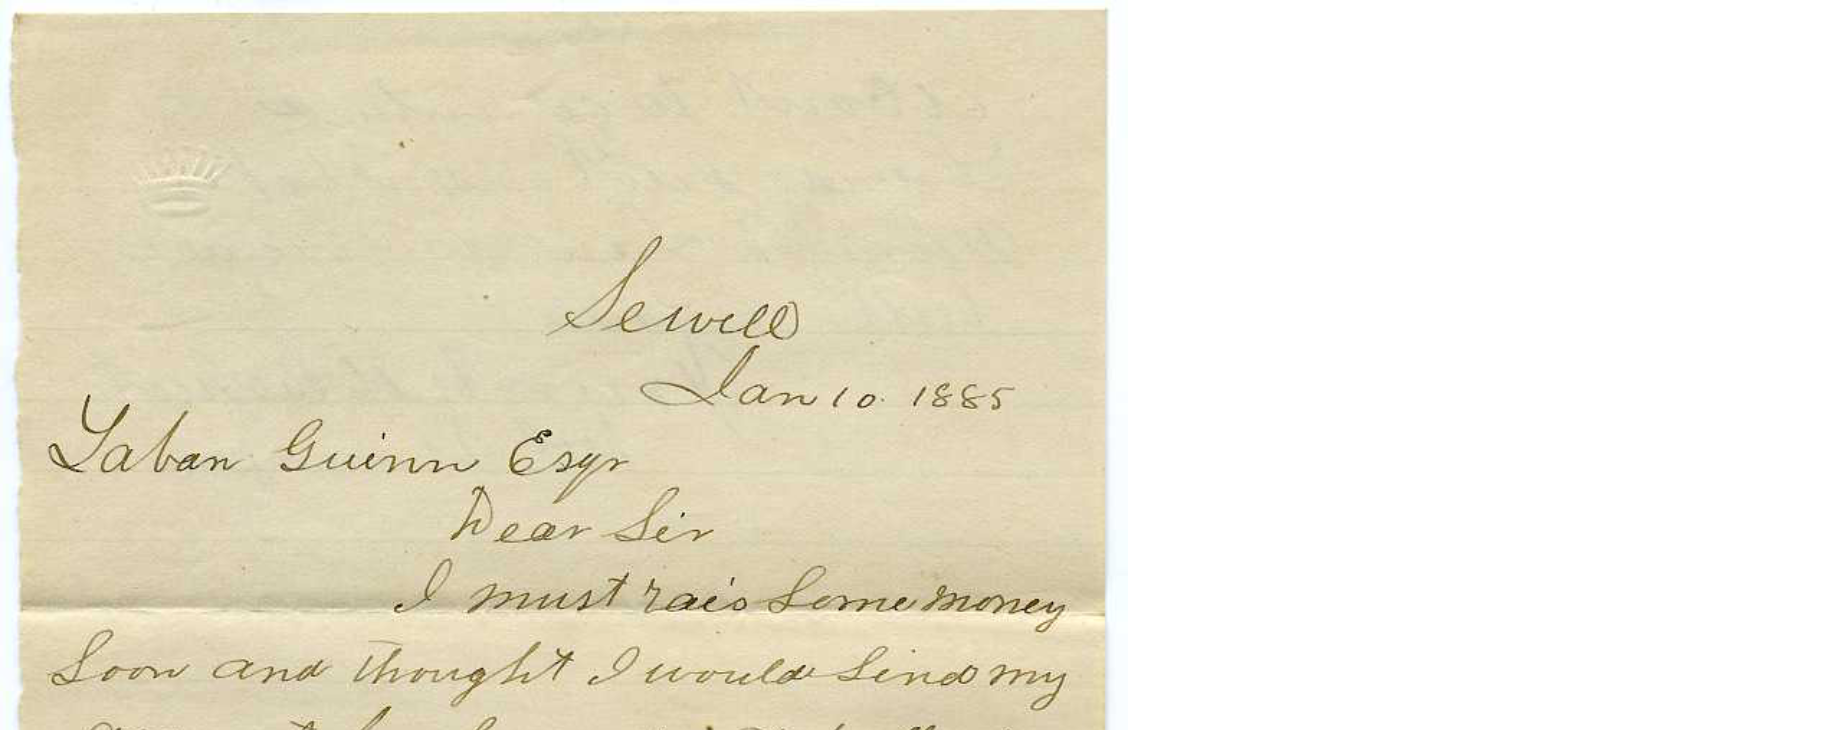 Sewell
Jan 10 1885
Laban Guinn Esqr
Dear Sir
I must rais some money
Soon and thought I would send my